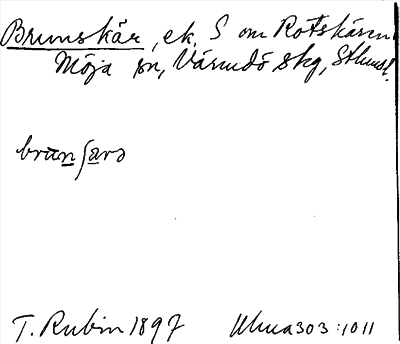 Brunskär, ek. S om Rotskären
Möja sn, Värmdö skg, Sthms l.
brunʃarə
T. Rubin 1897 Uluua303:1011